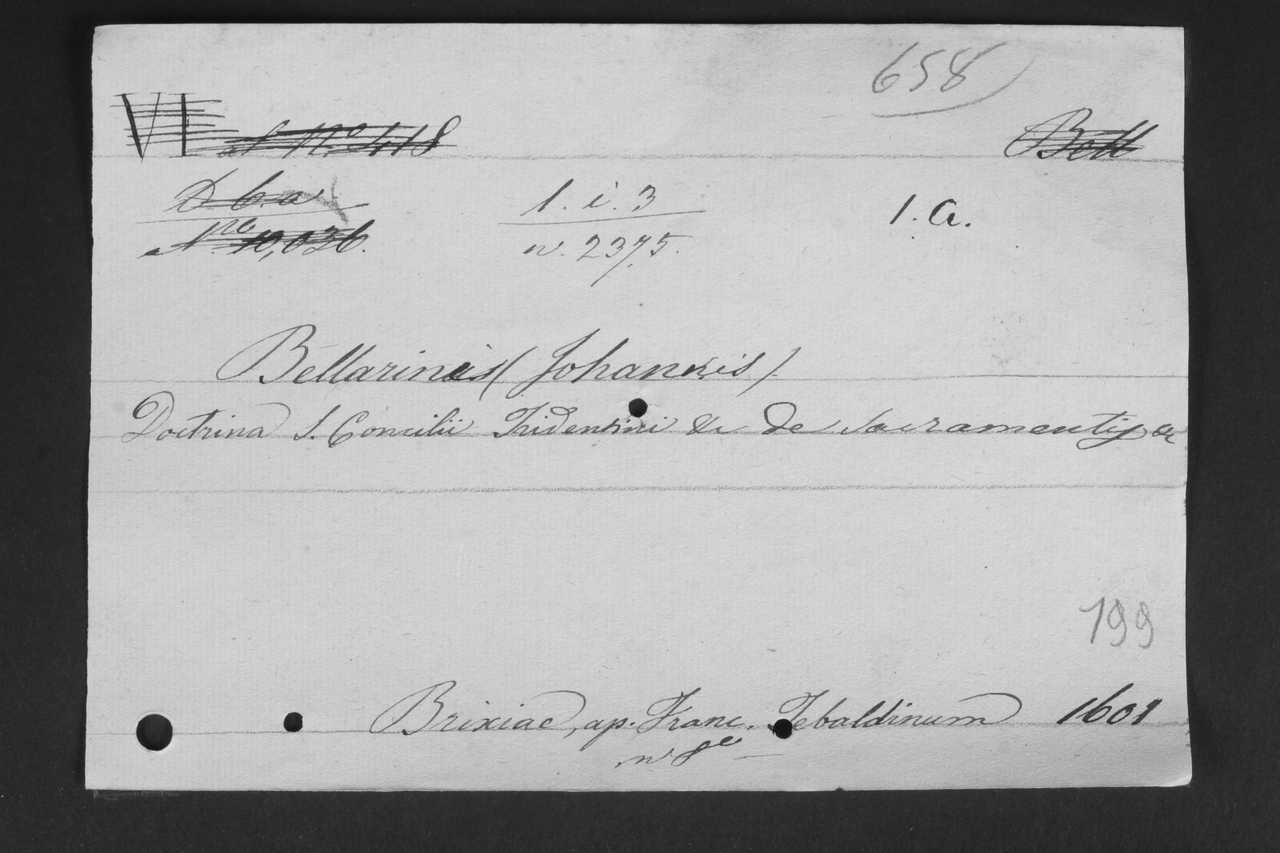 658
VI
Nº 418
Bell
D 6. a.
Nro 10,036.
1. i. 3
n. 2375.
1. a.
Bellarinis (Johannis)
Doctrina S. Concilii Tridentini &c de Sacramentis &c
199
Brixiae, ap. Franc. Tebaldinum 1601
in 8º